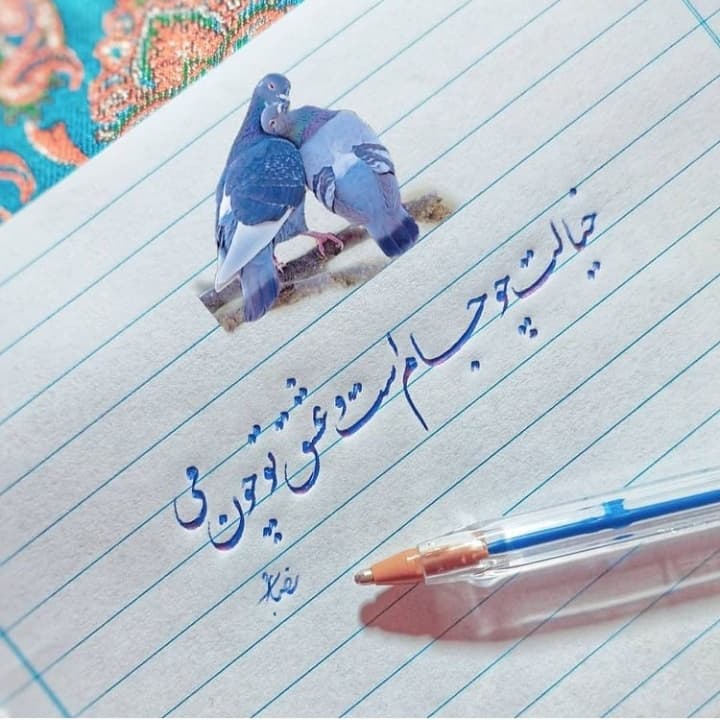 خیالت چو جام است و عشق تو چون می